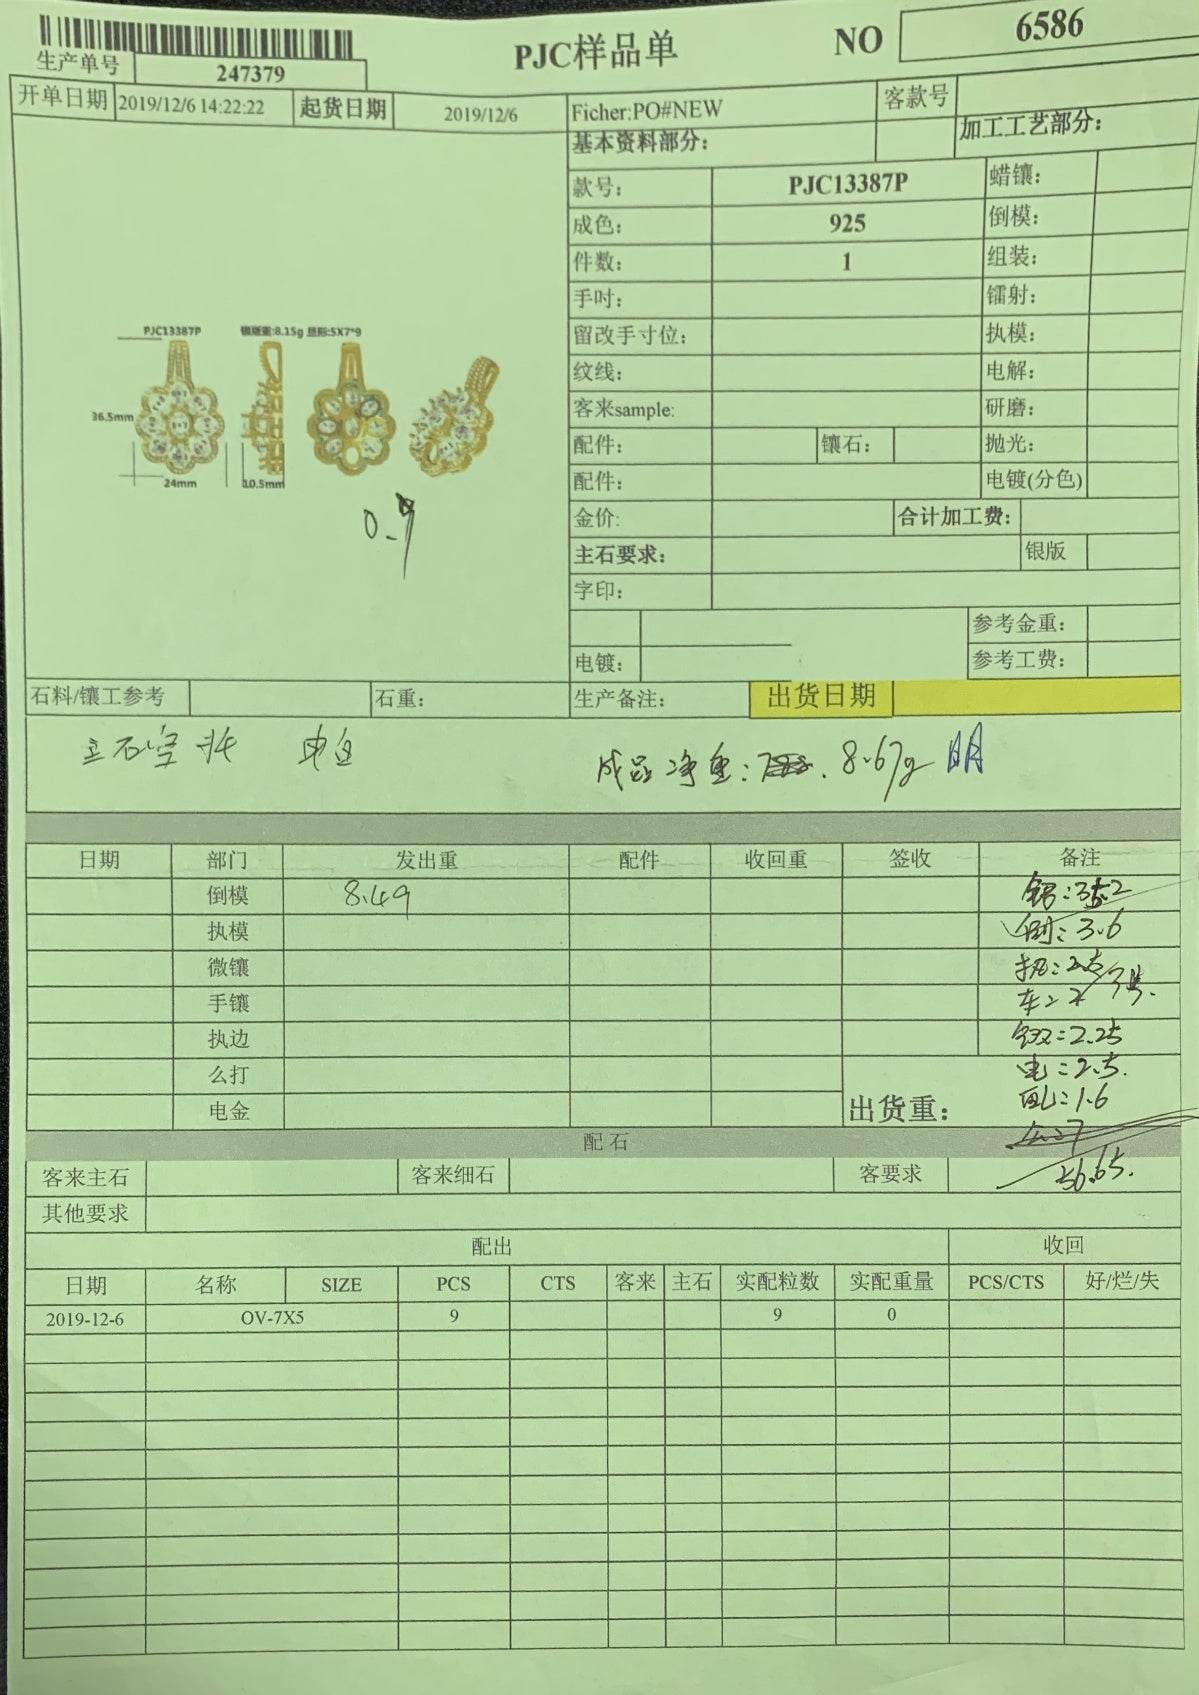 PJC样品单 NO 6586
生产单号 247379
开单日期 2019/12/6 14:22:22 起货日期 2019/12/6 Ficher:PO#NEW 客款号
基本资料部分： 加工工艺部分：
款号： PJC13387P 蜡镶：
成色： 925 倒模：
件数： 1 组装：
手吋： 镭射：
留改手寸位： 执模：
纹线： 电解：
客来sample: 研磨：
配件： 镶石： 抛光：
配件： 电镀(分色)
金价: 合计加工费：
主石要求： 银版
字印：
参考金重：
电镀： 参考工费：
PJC13387P 银版重:8.15g 蛋形:5X7*9
36.5mm
24mm 10.5mm
0.9
石料/镶工参考 石重： 生产备注： 出货日期
主石空托 电白
成品净重： 8.67g 明
日期 部门 发出重 配件 收回重 签收 备注
倒模 8.49
执模 倒：3.6
微镶 执：2.5
手镶 车：2
执边 2.25
么打 电：2.5.
电金 出货重： 1.6
配石
56.65.
客来主石 客来细石 客要求
其他要求
配出 收回
日期 名称 SIZE PCS CTS 客来 主石 实配粒数 实配重量 PCS/CTS 好/烂/失
2019-12-6 OV-7X5 9 9 0